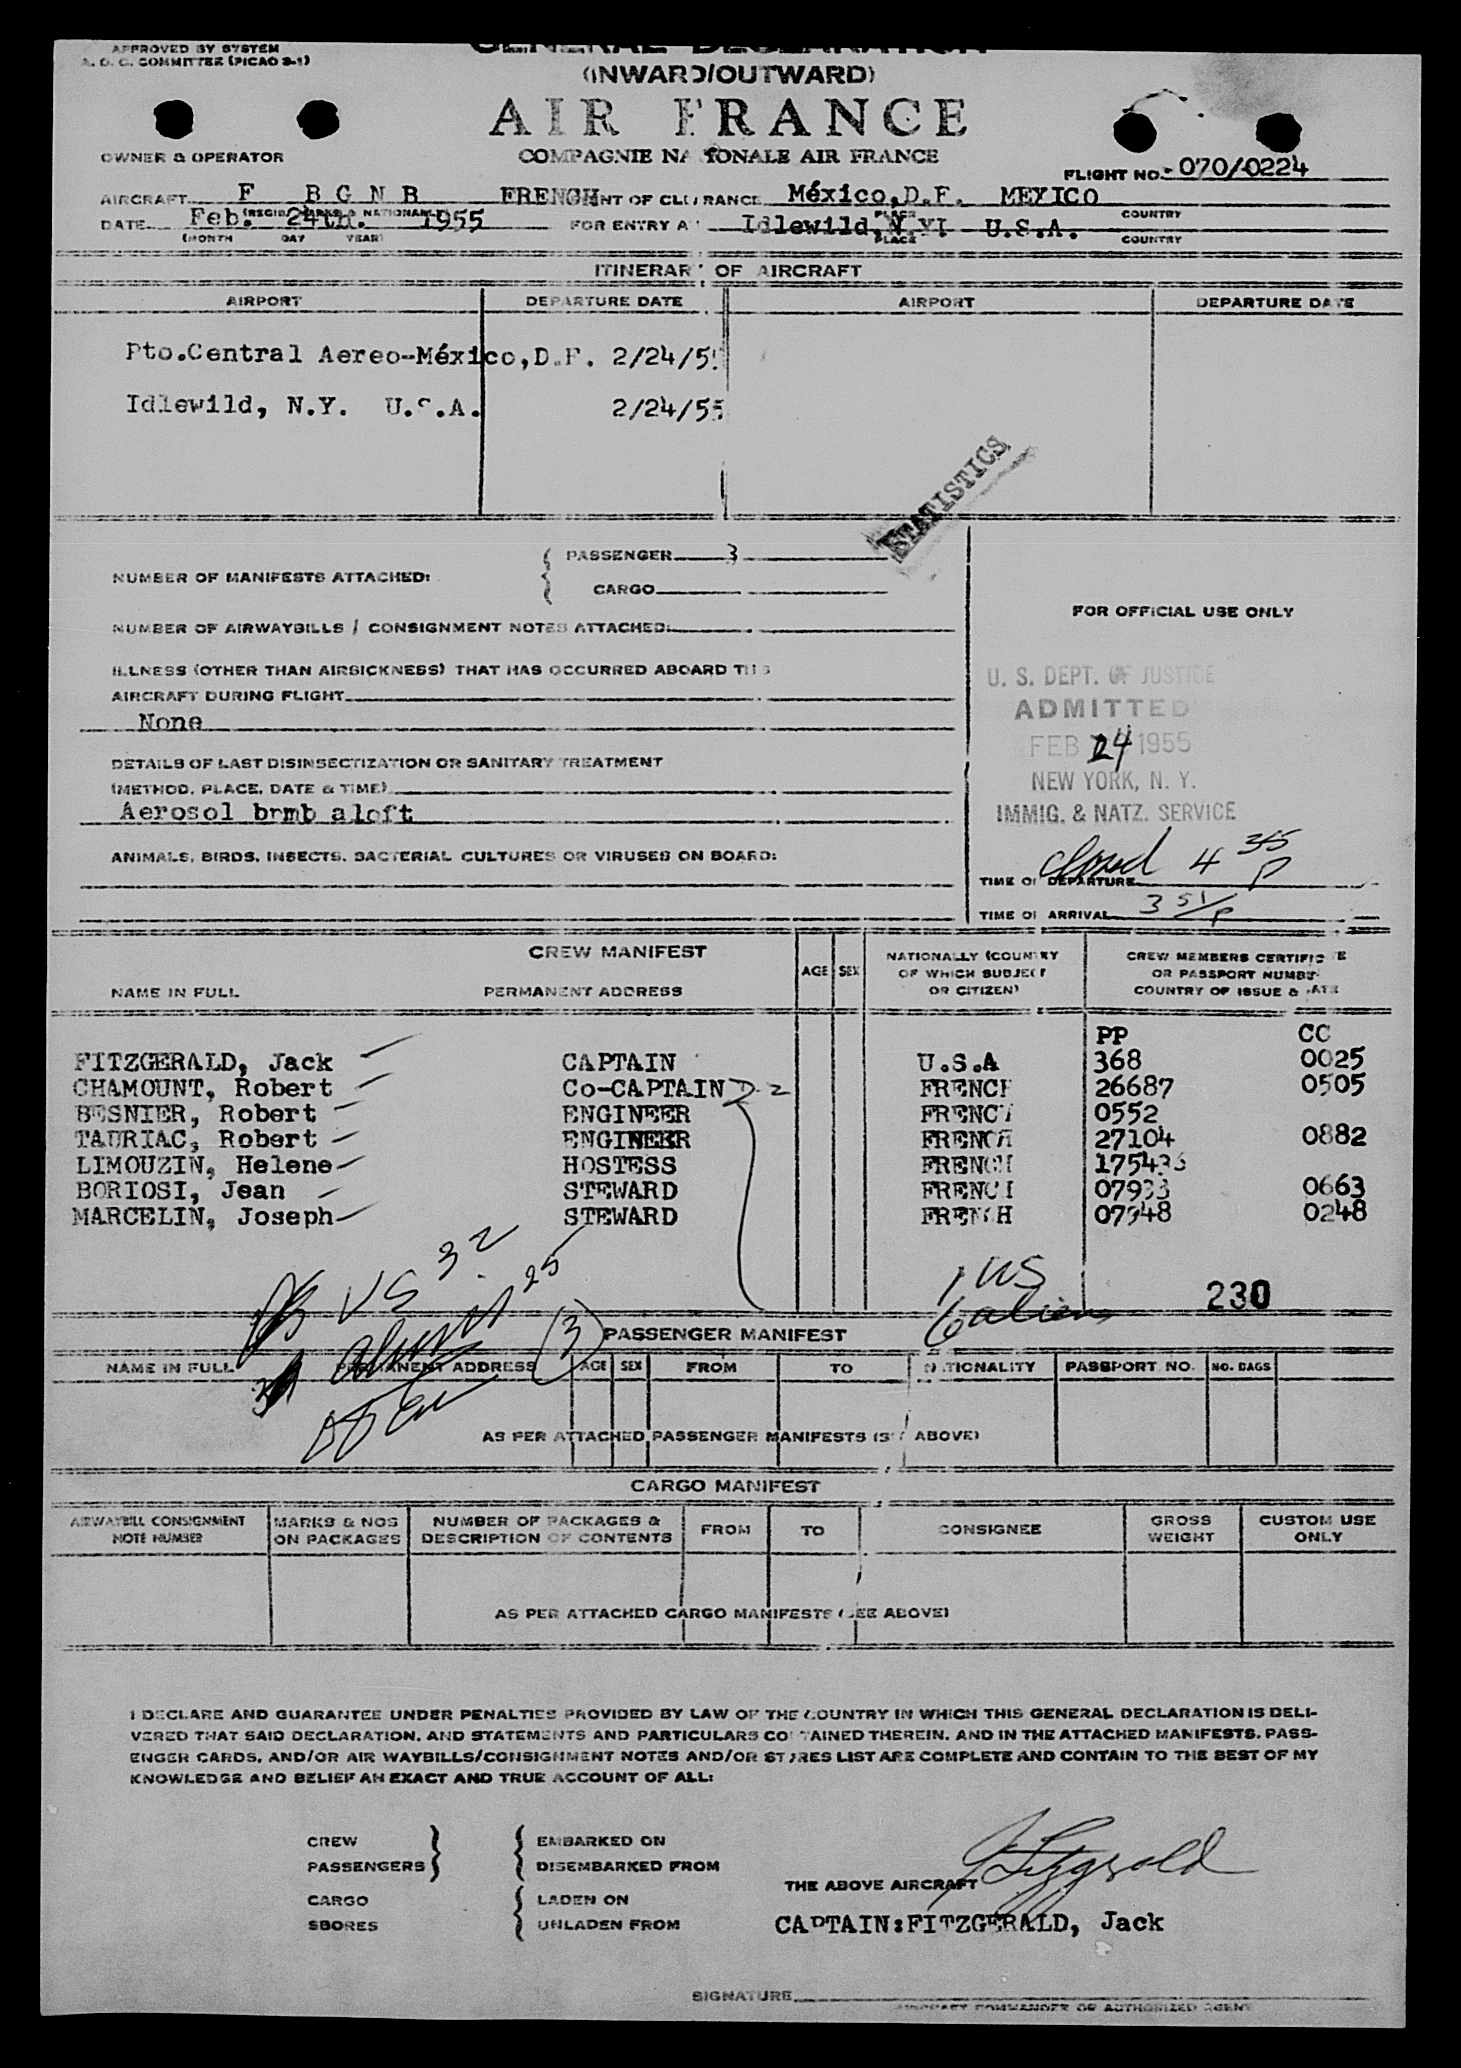 APPROVED BY SYSTEM
A. O. C. COMMITTEE (PICAO 2-1)
GENERAL DECLARATION
(INWARD/OUTWARD)
AIR FRANCE
COMPAGNIE NATIONALE AIR FRANCE
OWNER & OPERATOR
FLIGHT NO. - 070/0224
AIRCRAFT F B G N B FRENCH NT OF CLEARANCE México,D.F. MEXICO
(REGIS. MARKS & NATIONALITY) PLACE COUNTRY
DATE Feb. 24th. 1955 FOR ENTRY AT Idlewild,N.Y. U.S.A.
(MONTH DAY YEAR) PLACE COUNTRY
ITINERARY OF AIRCRAFT
AIRPORT DEPARTURE DATE AIRPORT DEPARTURE DATE
Pto.Central Aereo-México,D.F. 2/24/55
Idlewild, N.Y. U.S.A. 2/24/55
STATISTICS
NUMBER OF MANIFESTS ATTACHED: PASSENGER 3
CARGO
NUMBER OF AIRWAYBILLS / CONSIGNMENT NOTES ATTACHED:
ILLNESS (OTHER THAN AIRSICKNESS) THAT HAS OCCURRED ABOARD THIS
AIRCRAFT DURING FLIGHT
None
DETAILS OF LAST DISINSECTIZATION OR SANITARY TREATMENT
(METHOD, PLACE, DATE & TIME)
Aerosol bomb aloft
ANIMALS, BIRDS, INSECTS, BACTERIAL CULTURES OR VIRUSES ON BOARD:
FOR OFFICIAL USE ONLY
U. S. DEPT. OF JUSTICE
ADMITTED
FEB 24 1955
NEW YORK, N. Y.
IMMIG. & NATZ. SERVICE
closed 4 35 P
TIME OF DEPARTURE
TIME OF ARRIVAL 3 51/P
CREW MANIFEST
NAME IN FULL PERMANENT ADDRESS AGE SEX NATIONALLY (COUNTRY OF WHICH SUBJECT OR CITIZEN) CREW MEMBERS CERTIFICATE OR PASSPORT NUMBER COUNTRY OF ISSUE & DATE
PP CC
FITZGERALD, Jack CAPTAIN U.S.A 368 0025
CHAMOUNT, Robert Co-CAPTAIN D-2 FRENCH 26687 0505
BESNIER, Robert ENGINEER FRENCH 0552
TAURIAC, Robert ENGINEER FRENCH 27104 0882
LIMOUZIN, Helene HOSTESS FRENCH 175436
BORIOSI, Jean STEWARD FRENCH 07933 0663
MARCELIN, Joseph STEWARD FRENCH 07948 0248
US 32
25
1 US
6 aliens
230
(3)
PASSENGER MANIFEST
NAME IN FULL PERMANENT ADDRESS AGE SEX FROM TO NATIONALITY PASSPORT NO. NO. BAGS
AS PER ATTACHED PASSENGER MANIFESTS (SEE ABOVE)
CARGO MANIFEST
AIRWAYBILL CONSIGNMENT NOTE NUMBER MARKS & NOS ON PACKAGES NUMBER OF PACKAGES & DESCRIPTION OF CONTENTS FROM TO CONSIGNEE GROSS WEIGHT CUSTOM USE ONLY
AS PER ATTACHED CARGO MANIFESTS (SEE ABOVE)
I DECLARE AND GUARANTEE UNDER PENALTIES PROVIDED BY LAW OF THE COUNTRY IN WHICH THIS GENERAL DECLARATION IS DELI-
VERED THAT SAID DECLARATION, AND STATEMENTS AND PARTICULARS CONTAINED THEREIN, AND IN THE ATTACHED MANIFESTS, PASS-
ENGER CARDS, AND/OR AIR WAYBILLS/CONSIGNMENT NOTES AND/OR STORES LIST ARE COMPLETE AND CONTAIN TO THE BEST OF MY
KNOWLEDGE AND BELIEF AN EXACT AND TRUE ACCOUNT OF ALL:
CREW EMBARKED ON
PASSENGERS DISEMBARKED FROM
J Fitzgerald
THE ABOVE AIRCRAFT
CARGO LADEN ON
SBORES UNLADEN FROM
CAPTAIN:FITZGERALD, Jack
SIGNATURE
AIRCRAFT COMMANDER OR AUTHORIZED AGENT